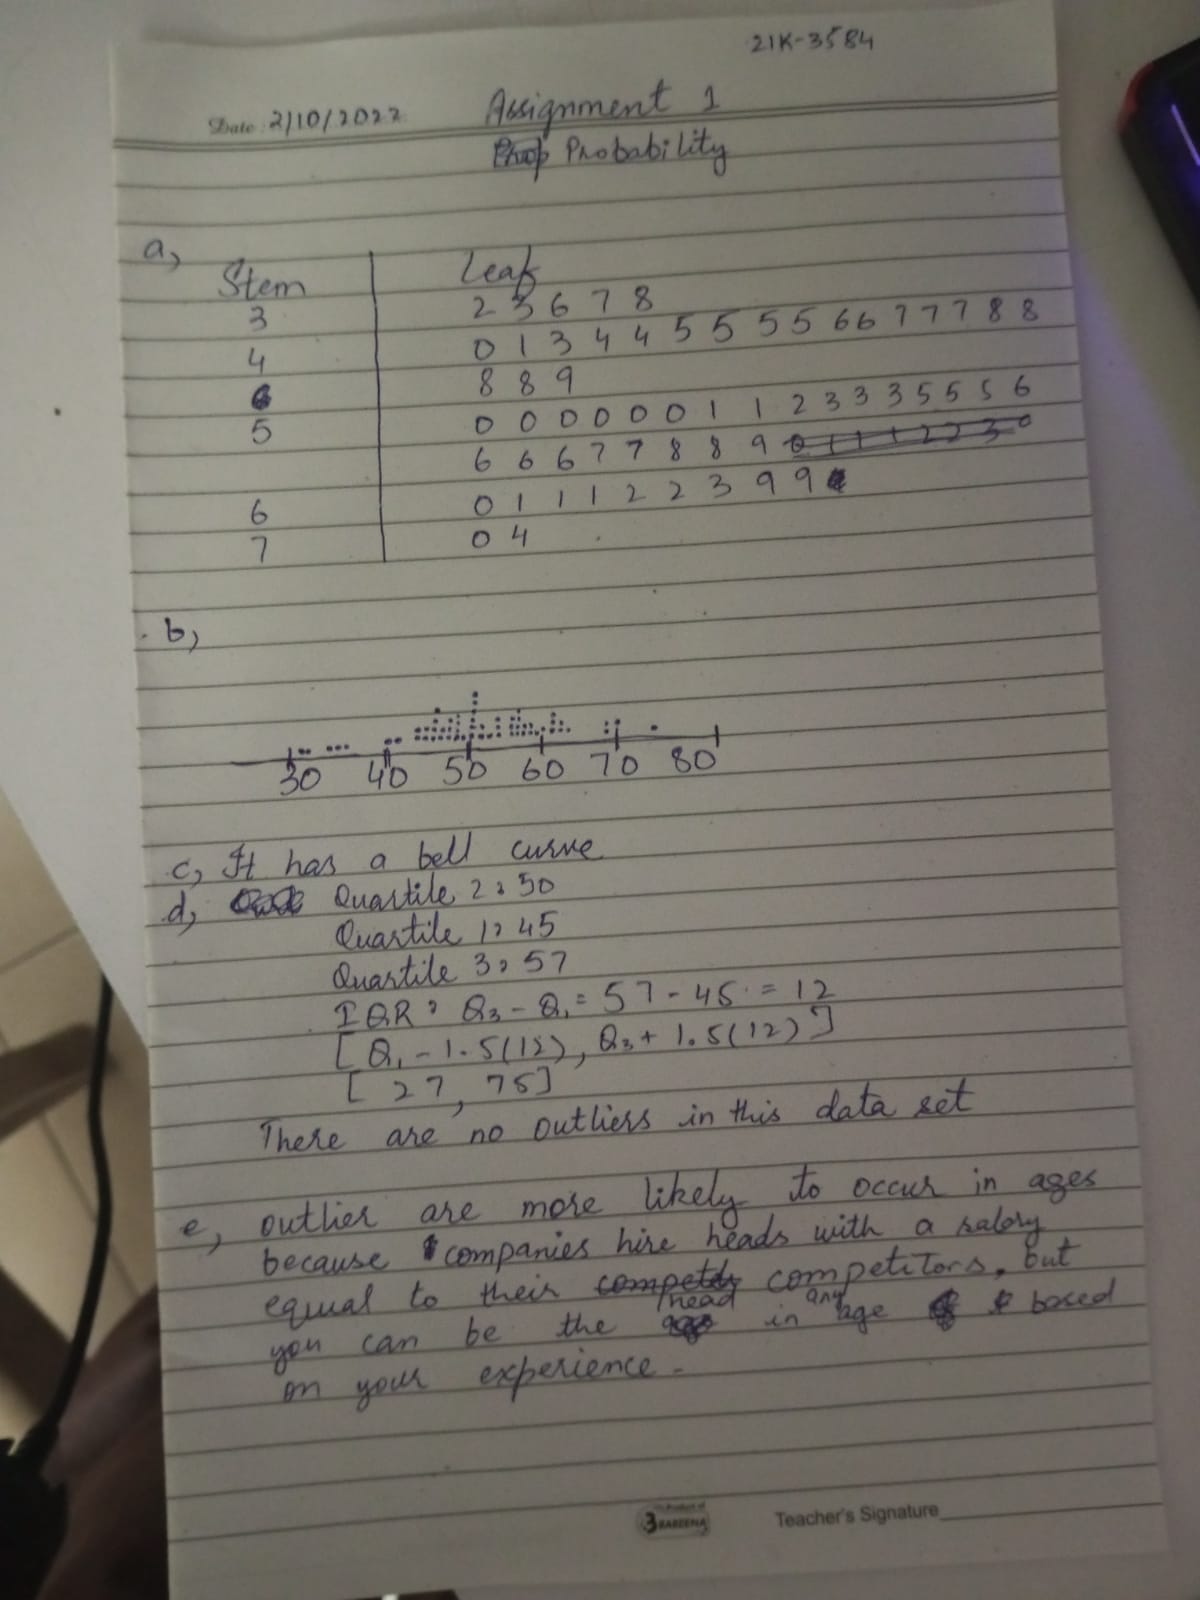 21K-3584
Assignment 1
Date: 2/10/2022
Probability
a,
Stem Leaf
3 2 3 6 7 8
4 0 1 3 4 4 5 5 5 5 6 6 7 7 7 8 8
8 8 9
5 0 0 0 0 0 0 1 1 2 3 3 3 5 5 5 6
6 6 6 7 7 8 8 9
6 0 1 1 1 2 2 3 9 9
7 0 4
b,
30 40 50 60 70 80
c, It has a bell curve
d, Quartile 2: 50
Quartile 1: 45
Quartile 3: 57
IQR: Q3 - Q1 = 57 - 45 = 12
[Q1 - 1.5(12), Q3 + 1.5(12)]
[27, 75]
There are no outliers in this data set
e, outlier are more likely to occur in ages
because companies hire heads with a salary
equal to their competitors, but
you can be the head in any age based
on your experience.
A Product of
3 BAREENA
Teacher's Signature